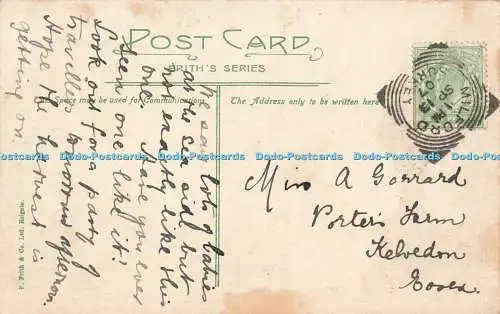 POST CARD
FRITH'S SERIES
This Space may be used for Communication.
The Address only to be written here
We saw lots of babies
at the sea side but
not exactly like this
one. Have you ever
seen one like it?
Look out for a party of
travellers tomorrow afternoon.
Hope the harvest is
getting on.
Miss A Gorrard
Porter's Farm
Kelvedon
Essex
MILFORD
SURREY
F. Frith & Co. Ltd., Reigate.
Dodo-Postcards Dodo-Postcards Dodo-Postcards Dodo-Postcards Dodo-Postcards Dodo-Postcards